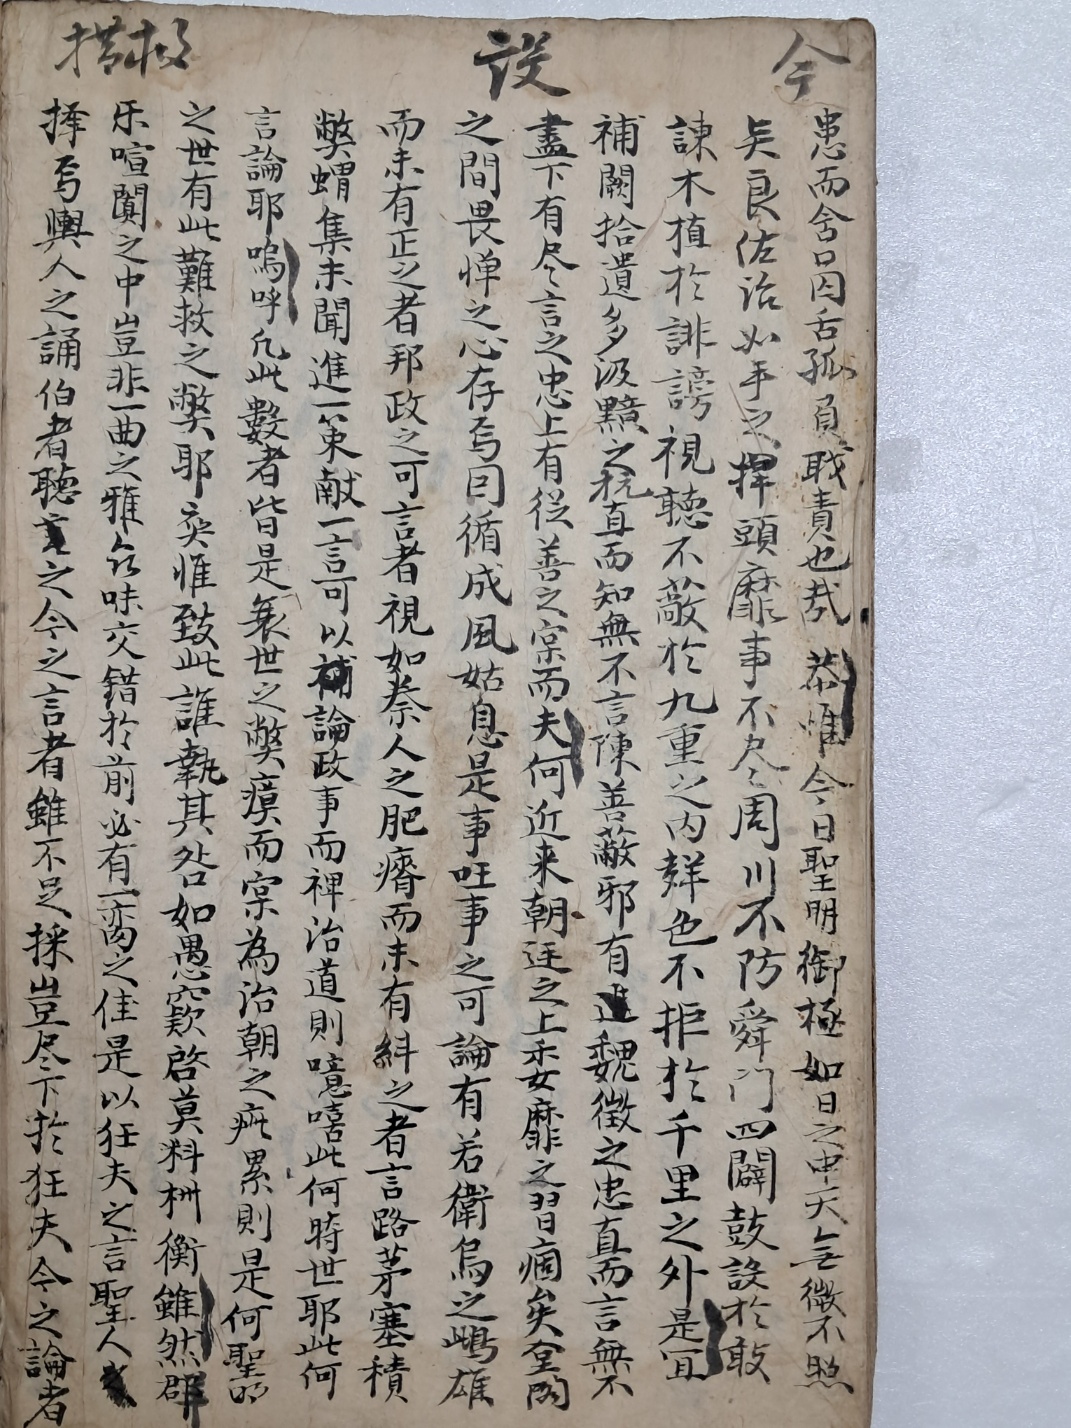 今
設
患而含口囚舌孤負職責也哉恭惟今日聖明御極如日之中天無微不照
矣良佐治如手之捍頭靡事不尽周川不防舜门四闢鼓設於敢
諫木植於誹謗視聽不蔽於九重之内辞色不拒於千里之外是宜
補闕拾遺多汲黯之抗直而知無不言陳善蔽邪有魏徵之忠直而言無不
盡下有尽言之忠上有從善之実而夫何近来朝廷之上委靡之習痼矣台閣
之間畏惮之心存焉因循成風姑息是事旺事之可論有若衛烏之雌雄
而未有正之者邦政之可言者視如秦人之肥瘠而未有糾之者言路茅塞積
弊蝟集未聞進一策献一言可以補論政事而裨治道則噫嘻此何時世耶此何
言論耶嗚呼凡此數者皆是衰世之弊瘼而実為治朝之疵累則是何聖明
之世有此難救之弊耶奕惟致此誰執其咎如愚窾啓莫料枡衡雖然群
乐喧闐之中豈非一曲之雅衆味交錯於前必有一脔之佳是以狂夫之言聖人
择焉輿人之誦伯者聽之今之言者雖不足採豈尽下於狂夫今之論者